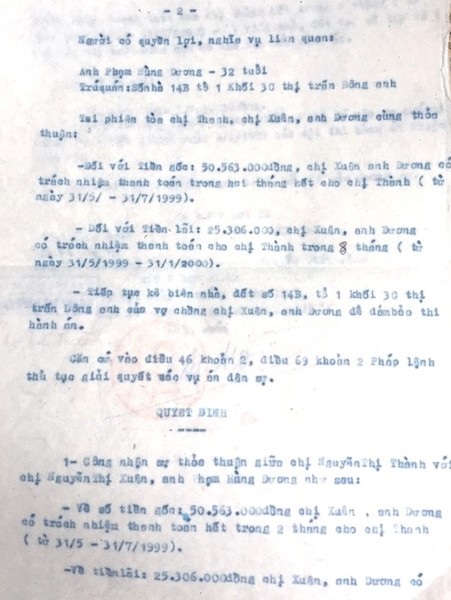 - 2 -
Người có quyền lợi, nghĩa vụ liên quan:
Anh Phạm Hùng Dương - 32 tuổi
Trú quán: Số nhà 14B tổ 1 Khối 3C thị trấn Đông anh
Tại phiên tòa chị Thanh, chị Xuân, anh Dương cùng thỏa
thuận:
-Đối với Tiền gốc: 50.563.000đồng, chị Xuân anh Dương có
trách nhiệm thanh toán trong hai tháng hết cho chị Thành ( từ
ngày 31/5/ - 31/7/1999).
- Đối với Tiền lãi: 25.306.000, chị Xuân, anh Dương
có trách nhiệm thanh toán cho chị Thành trong 8 tháng ( từ
ngày 31/5/1999 - 31/1/2000).
- Tiếp tục kê biên nhà, đất số 14B, tổ 1 khối 3C thị
trấn Đông anh của vợ chồng chị Xuân, anh Dương để đảm bảo thi
hành án.
Căn cứ vào điều 46 khoản 2, điều 69 khoản 2 Pháp lệnh
thủ tục giải quyết các vụ án dân sự.
QUYẾT ĐỊNH
----
1- Công nhận sự thỏa thuận giữa chị Nguyễn Thị Thành với
chị Nguyễn Thị Xuân, anh Phạm Hùng Dương như sau:
- Về số tiền gốc: 50.563.000đồng chị Xuân , anh Dương
có trách nhiệm thanh toán hết trong 2 tháng cho chị Thanh
( từ 31/5 - 31/7/1999).
-Về tiền lãi: 25.306.000đồng chị Xuân, anh Dương có